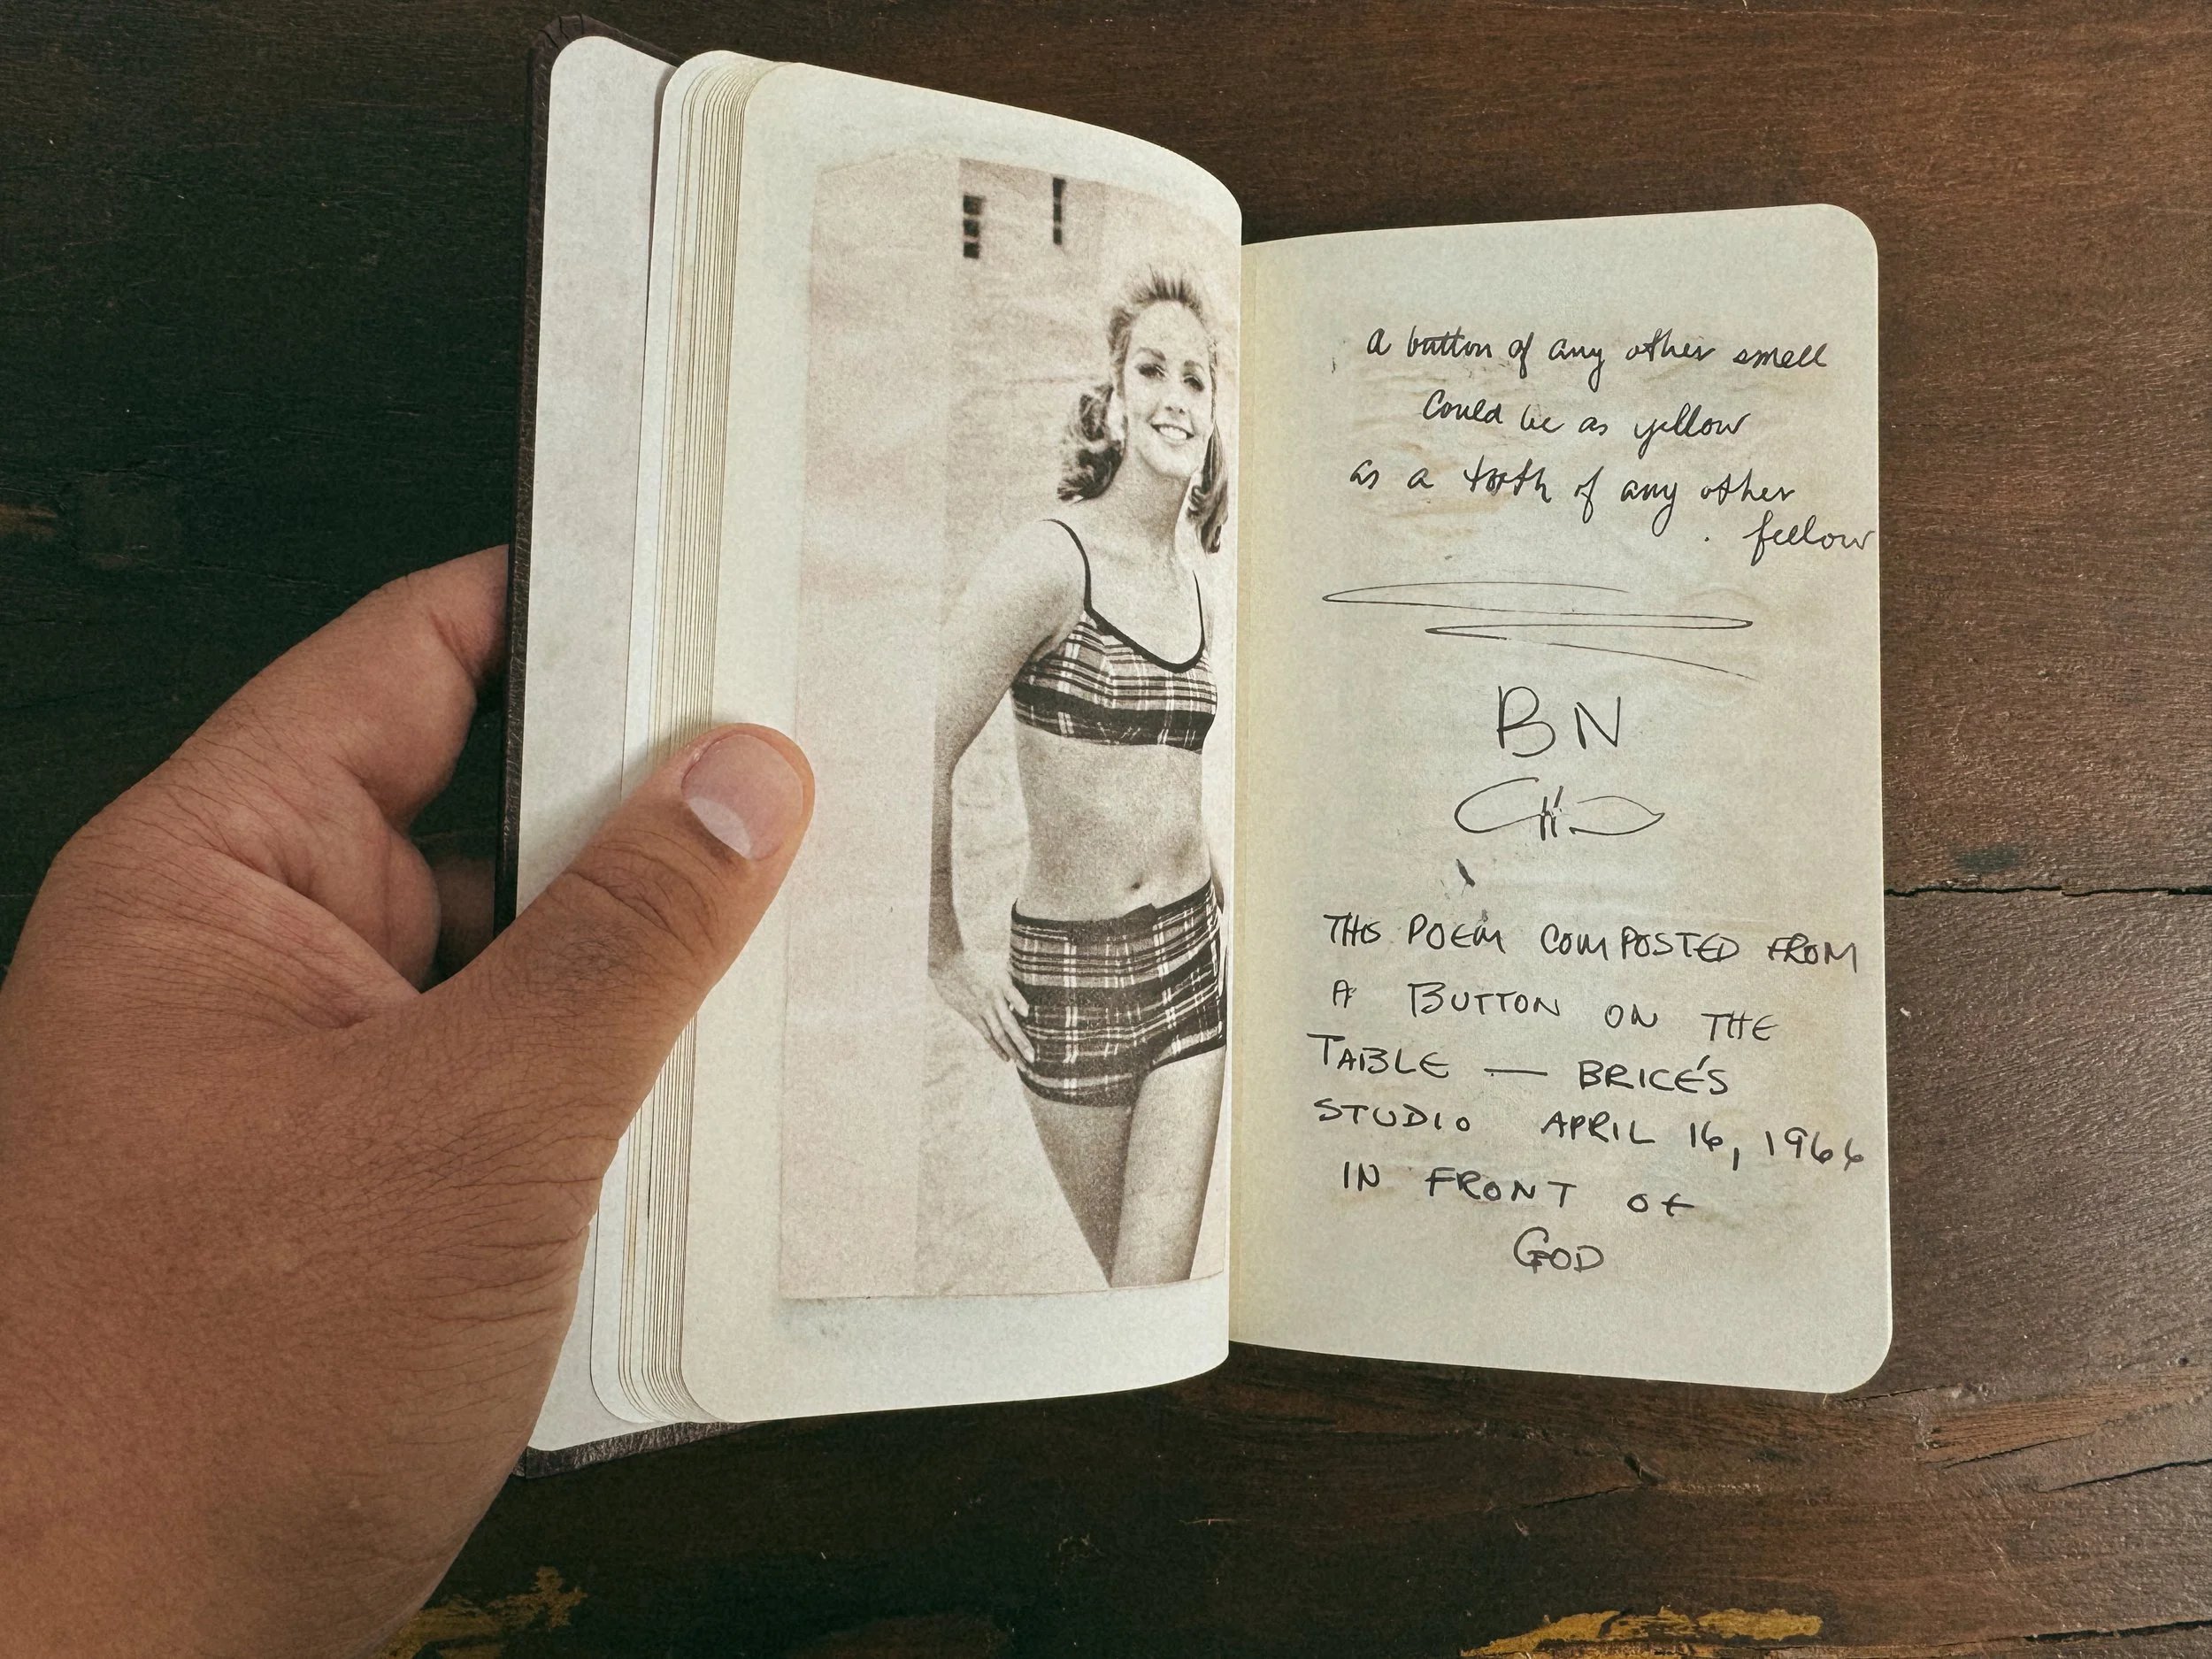 a button of any other smell
could be as yellow
as a tooth of any other
fellow
BN
THIS POEM COMPOSTED FROM
A BUTTON ON THE
TABLE — BRICE'S
STUDIO APRIL 16, 1966
IN FRONT OF
GOD